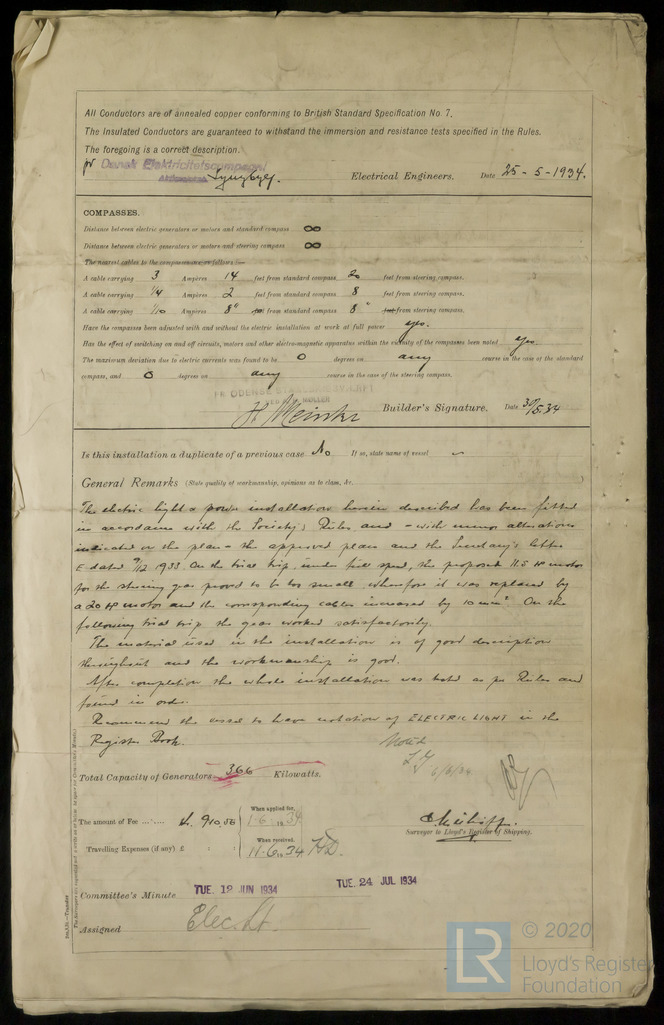 All Conductors are of annealed copper conforming to British Standard Specification No. 7.
The Insulated Conductors are guaranteed to withstand the immersion and resistance tests specified in the Rules.
The foregoing is a correct description.
pr Dansk Elektricitetscompagni
Electrical Engineers. Date 25-5-1934.
COMPASSES.
Distance between electric generators or motors and standard compass ∞
Distance between electric generators or motors and steering compass ∞
The nearest cables to the compasses are as follows:—
A cable carrying 3 Ampères 14 feet from standard compass 20 feet from steering compass.
A cable carrying 1/4 Ampères 2 feet from standard compass 8 feet from steering compass.
A cable carrying 1/10 Ampères 8" feet from standard compass 8" feet from steering compass.
Have the compasses been adjusted with and without the electric installation at work at full power yes.
Has the effect of switching on and off circuits, motors and other electro-magnetic apparatus within the vicinity of the compasses been noted yes
The maximum deviation due to electric currents was found to be 0 degrees on any course in the case of the standard
compass, and 0 degrees on any course in the case of the steering compass.
ODENSE
MØLLER
Builder's Signature. Date 30/5.34
Is this installation a duplicate of a previous case No If so, state name of vessel
General Remarks (State quality of workmanship, opinions as to class, &c.
The electric light & power installation herein described has been fitted
in accordance with the Society's Rules and - with minor alterations
indicated on the plan - the approved plan and the Secretary's letter
E dated 9/12 1933. On the trial trip, under full speed, the proposed 11.5 HP motor
for the steering gear proved to be too small wherefore it was replaced by
a 20 HP motor and the corresponding cables increased by 10 mm². On the
following trial trip the gear worked satisfactorily.
The material used in the installation is of good description
throughout and the workmanship is good.
After completion the whole installation was tested as per Rules and
found in order.
Recommend the vessel to have notation of ELECTRIC LIGHT in the
Register Book.
Noted
Total Capacity of Generators 366 Kilowatts.
The amount of Fee ...... Kr. 910.56
When applied for, 1.6.1934
Travelling Expenses (if any) £ : :
When received, 11.6.1934
Surveyor to Lloyd's Register of Shipping.
Committee's Minute TUE. 12 JUN 1934 TUE. 24 JUL 1934
Assigned Elec. Lt.
© 2020
LR
Lloyd's Register
Foundation